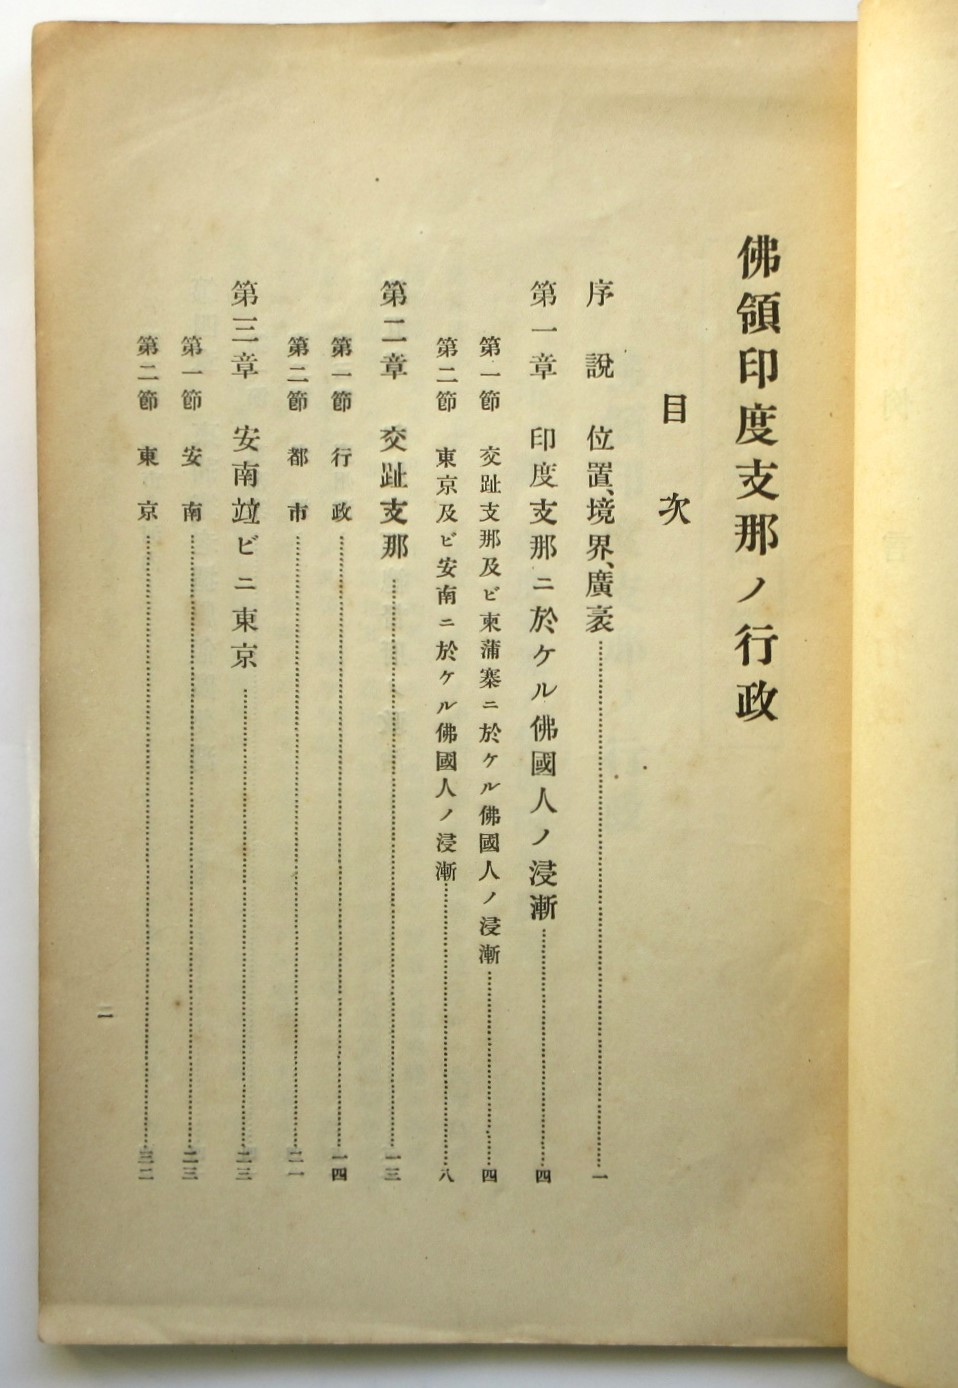 佛領印度支那ノ行政
目次
序說 位置、境界、廣袤……一
第一章 印度支那ニ於ケル佛國人ノ浸漸……四
第一節 交趾支那及ビ柬蒲寨ニ於ケル佛國人ノ浸漸……四
第二節 東京及ビ安南ニ於ケル佛國人ノ浸漸……八
第二章 交趾支那……一三
第一節 行政……一四
第二節 都市……二一
第三章 安南竝ビニ東京……二三
第一節 安南……二三
第二節 東京……三二